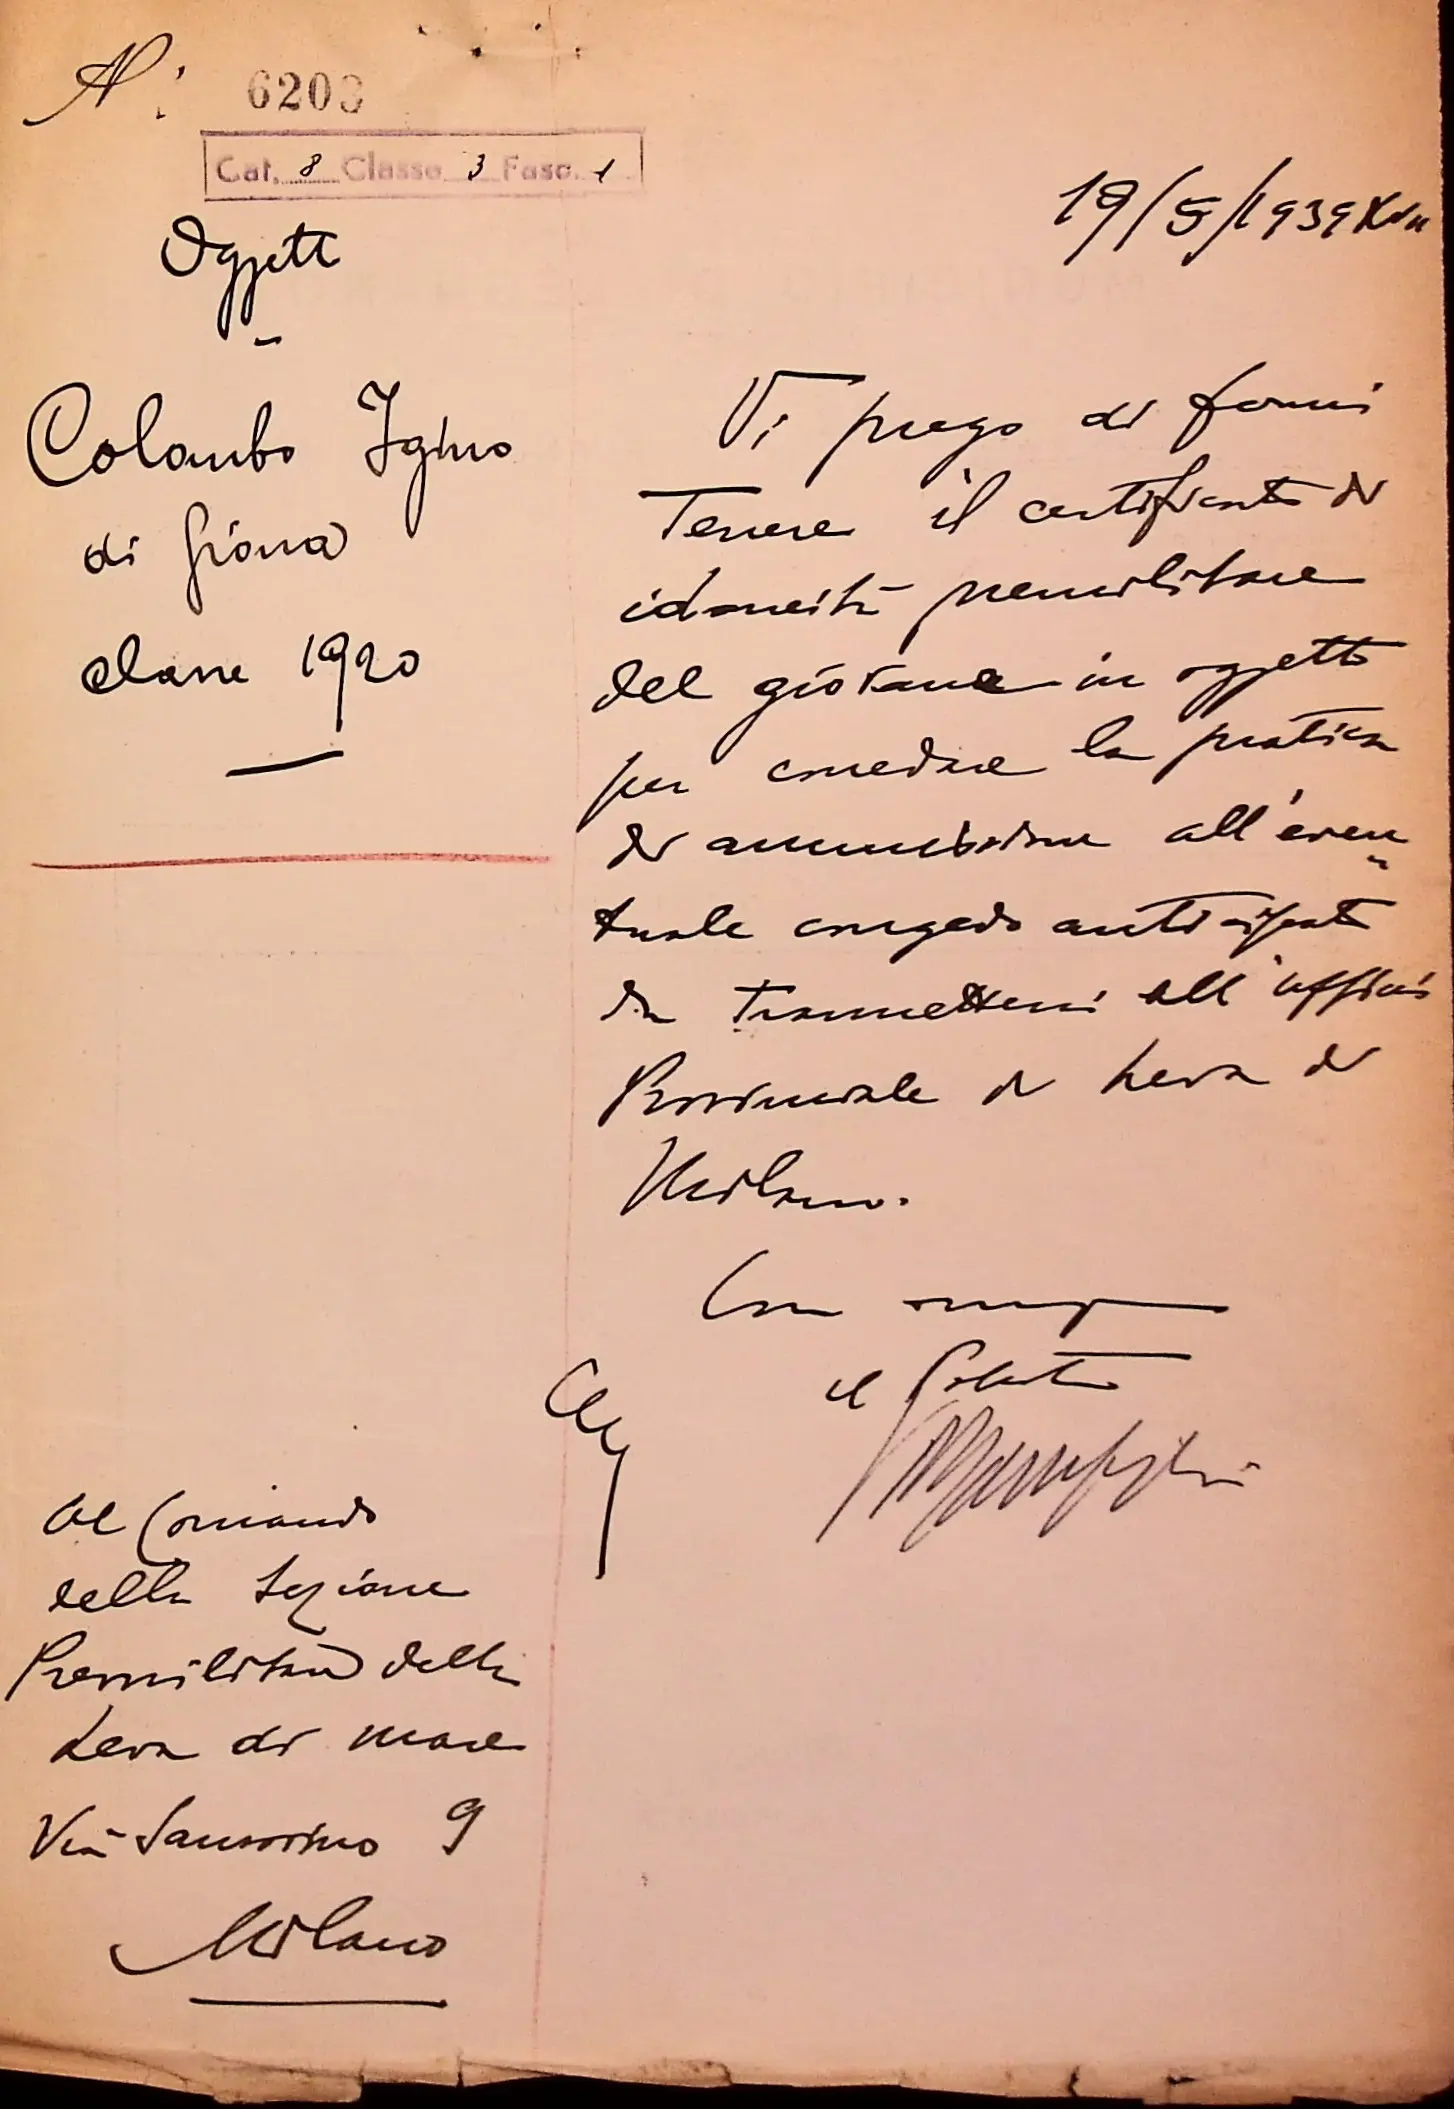 N. 6203
Cat. 8 Classe 3 Fasc. 1
19/5/1939 XVII
Oggetto
Colombo Igino
di Giona
classe 1920
Vi prego di farmi
tenere il certificato di
idoneità premilitare
del giovane in oggetto
per corredare la pratica
di ammissione all'even
tuale congedo anticipato
da trasmettersi all'ufficio
Provinciale di Leva di
Milano.
Con
il Podestà
Al Comando
della Sezione
Premilitare della
Leva di mare
Via Sansovino 9
Milano